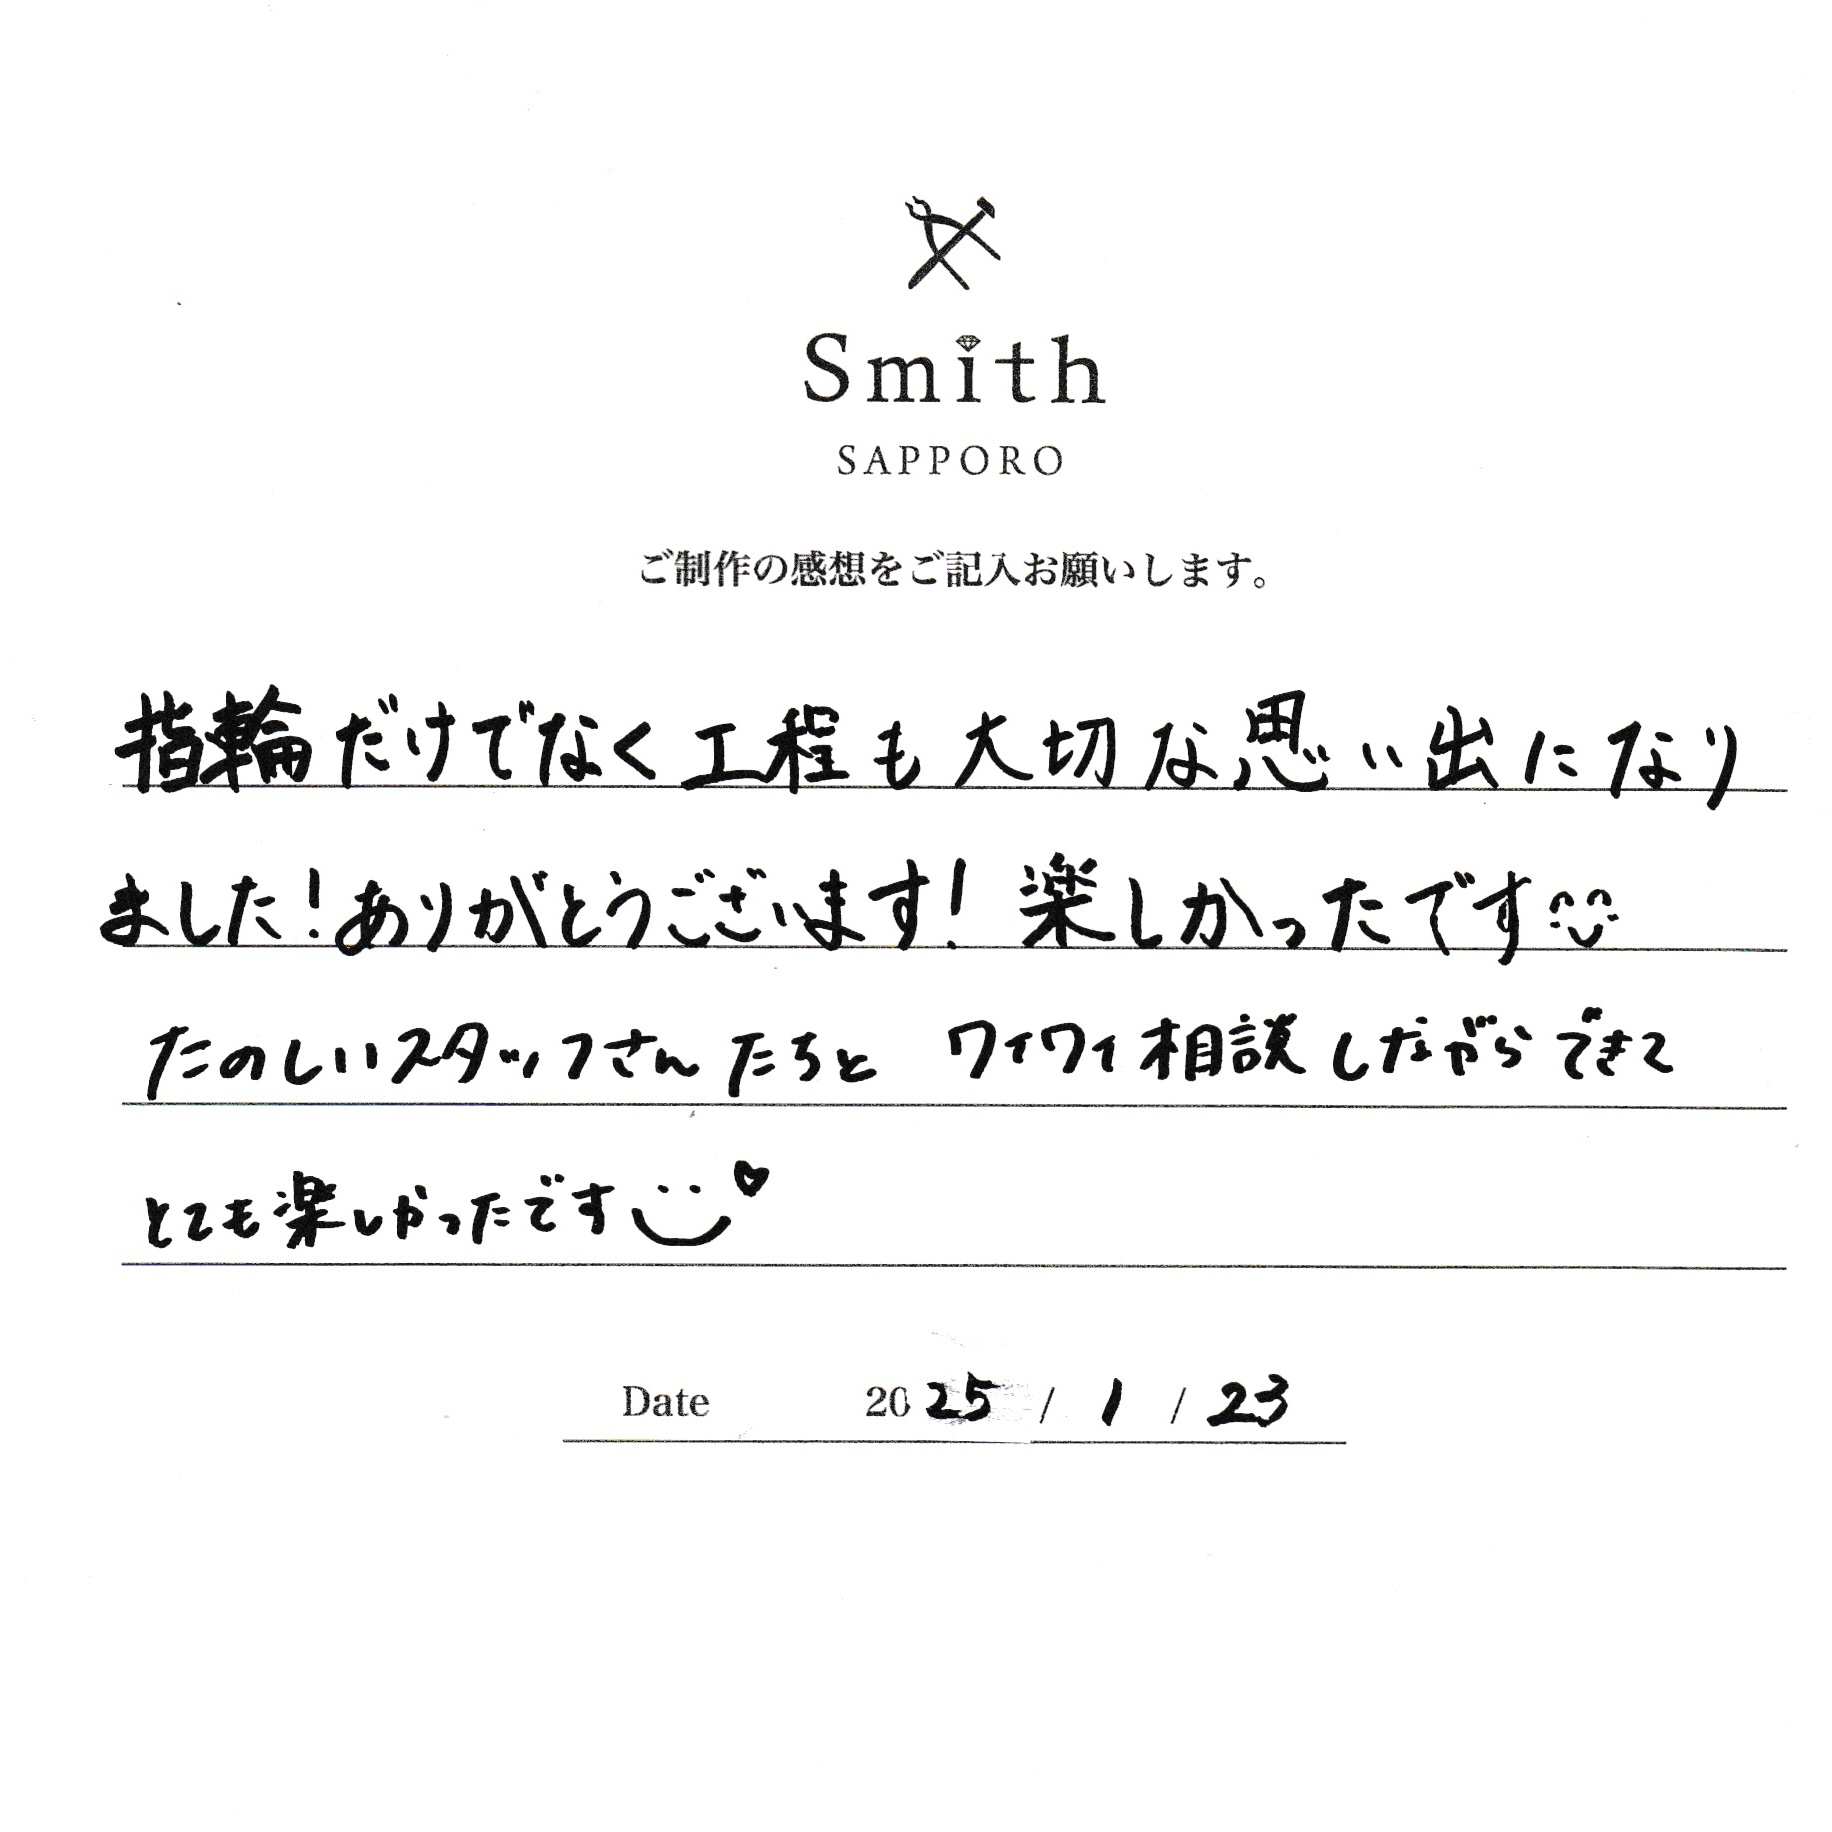 Smith
SAPPORO
ご制作の感想をご記入お願いします。
指輪だけでなく工程も大切な思い出になり
ました!ありがとうございます!楽しかったです
たのしいスタッフさんたちと ワイワイ相談しながらできて
とても楽しかったです
Date 2025 / 1 / 23